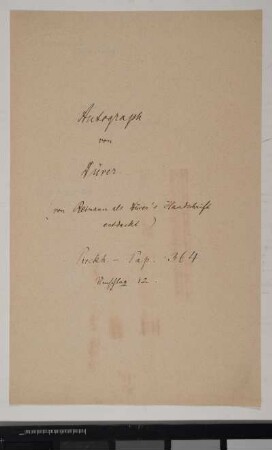 Autograph
von
Dürer
(von Reimann als Dürer's Handschrift
entdeckt)
Pirckh - Pap. 364
Umschlag 12.